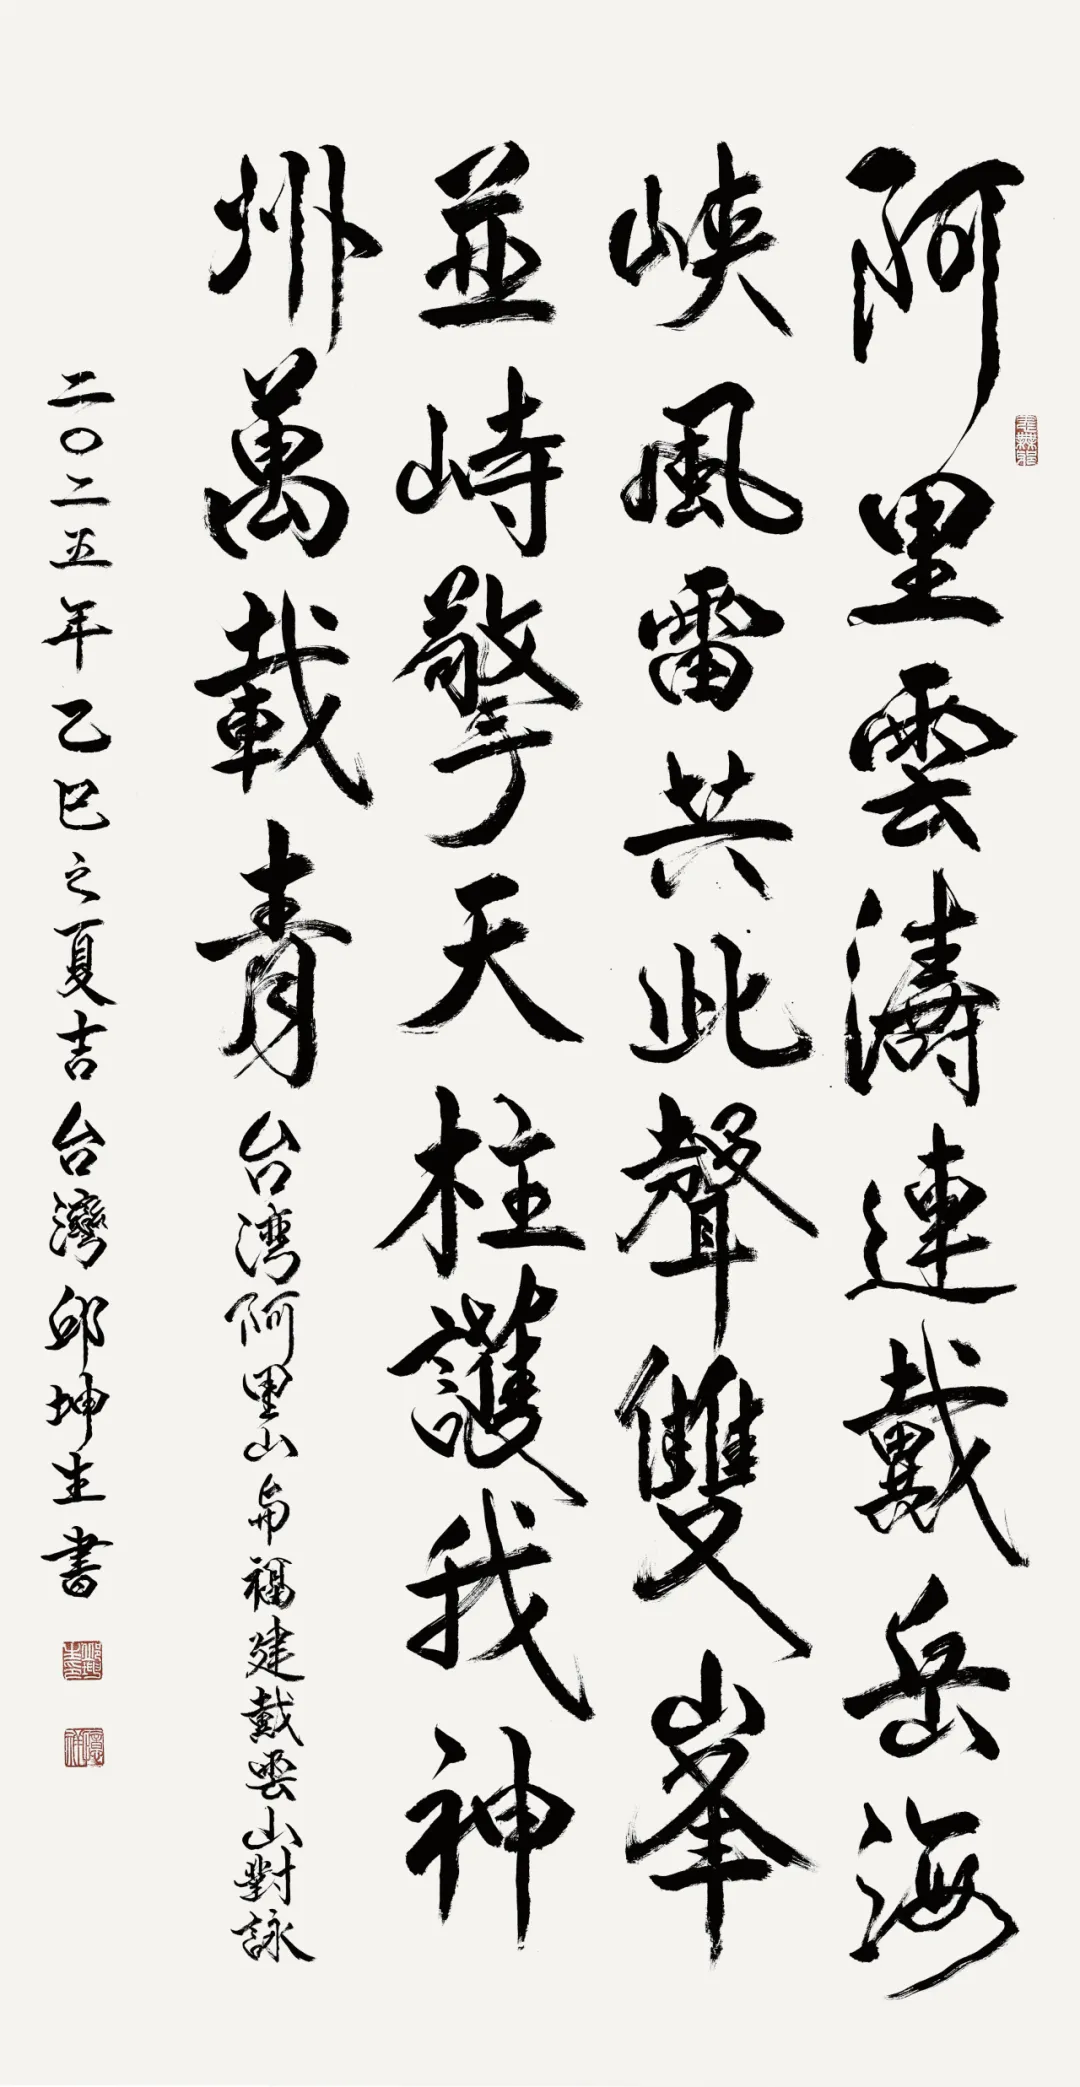 阿里雲濤連戴岳海
峽風雷共此聲雙峯
並峙擎天柱護我神
州萬載青
台湾阿里山與福建戴雲山對詠
二〇二五年乙巳之夏吉台灣邱坤生書